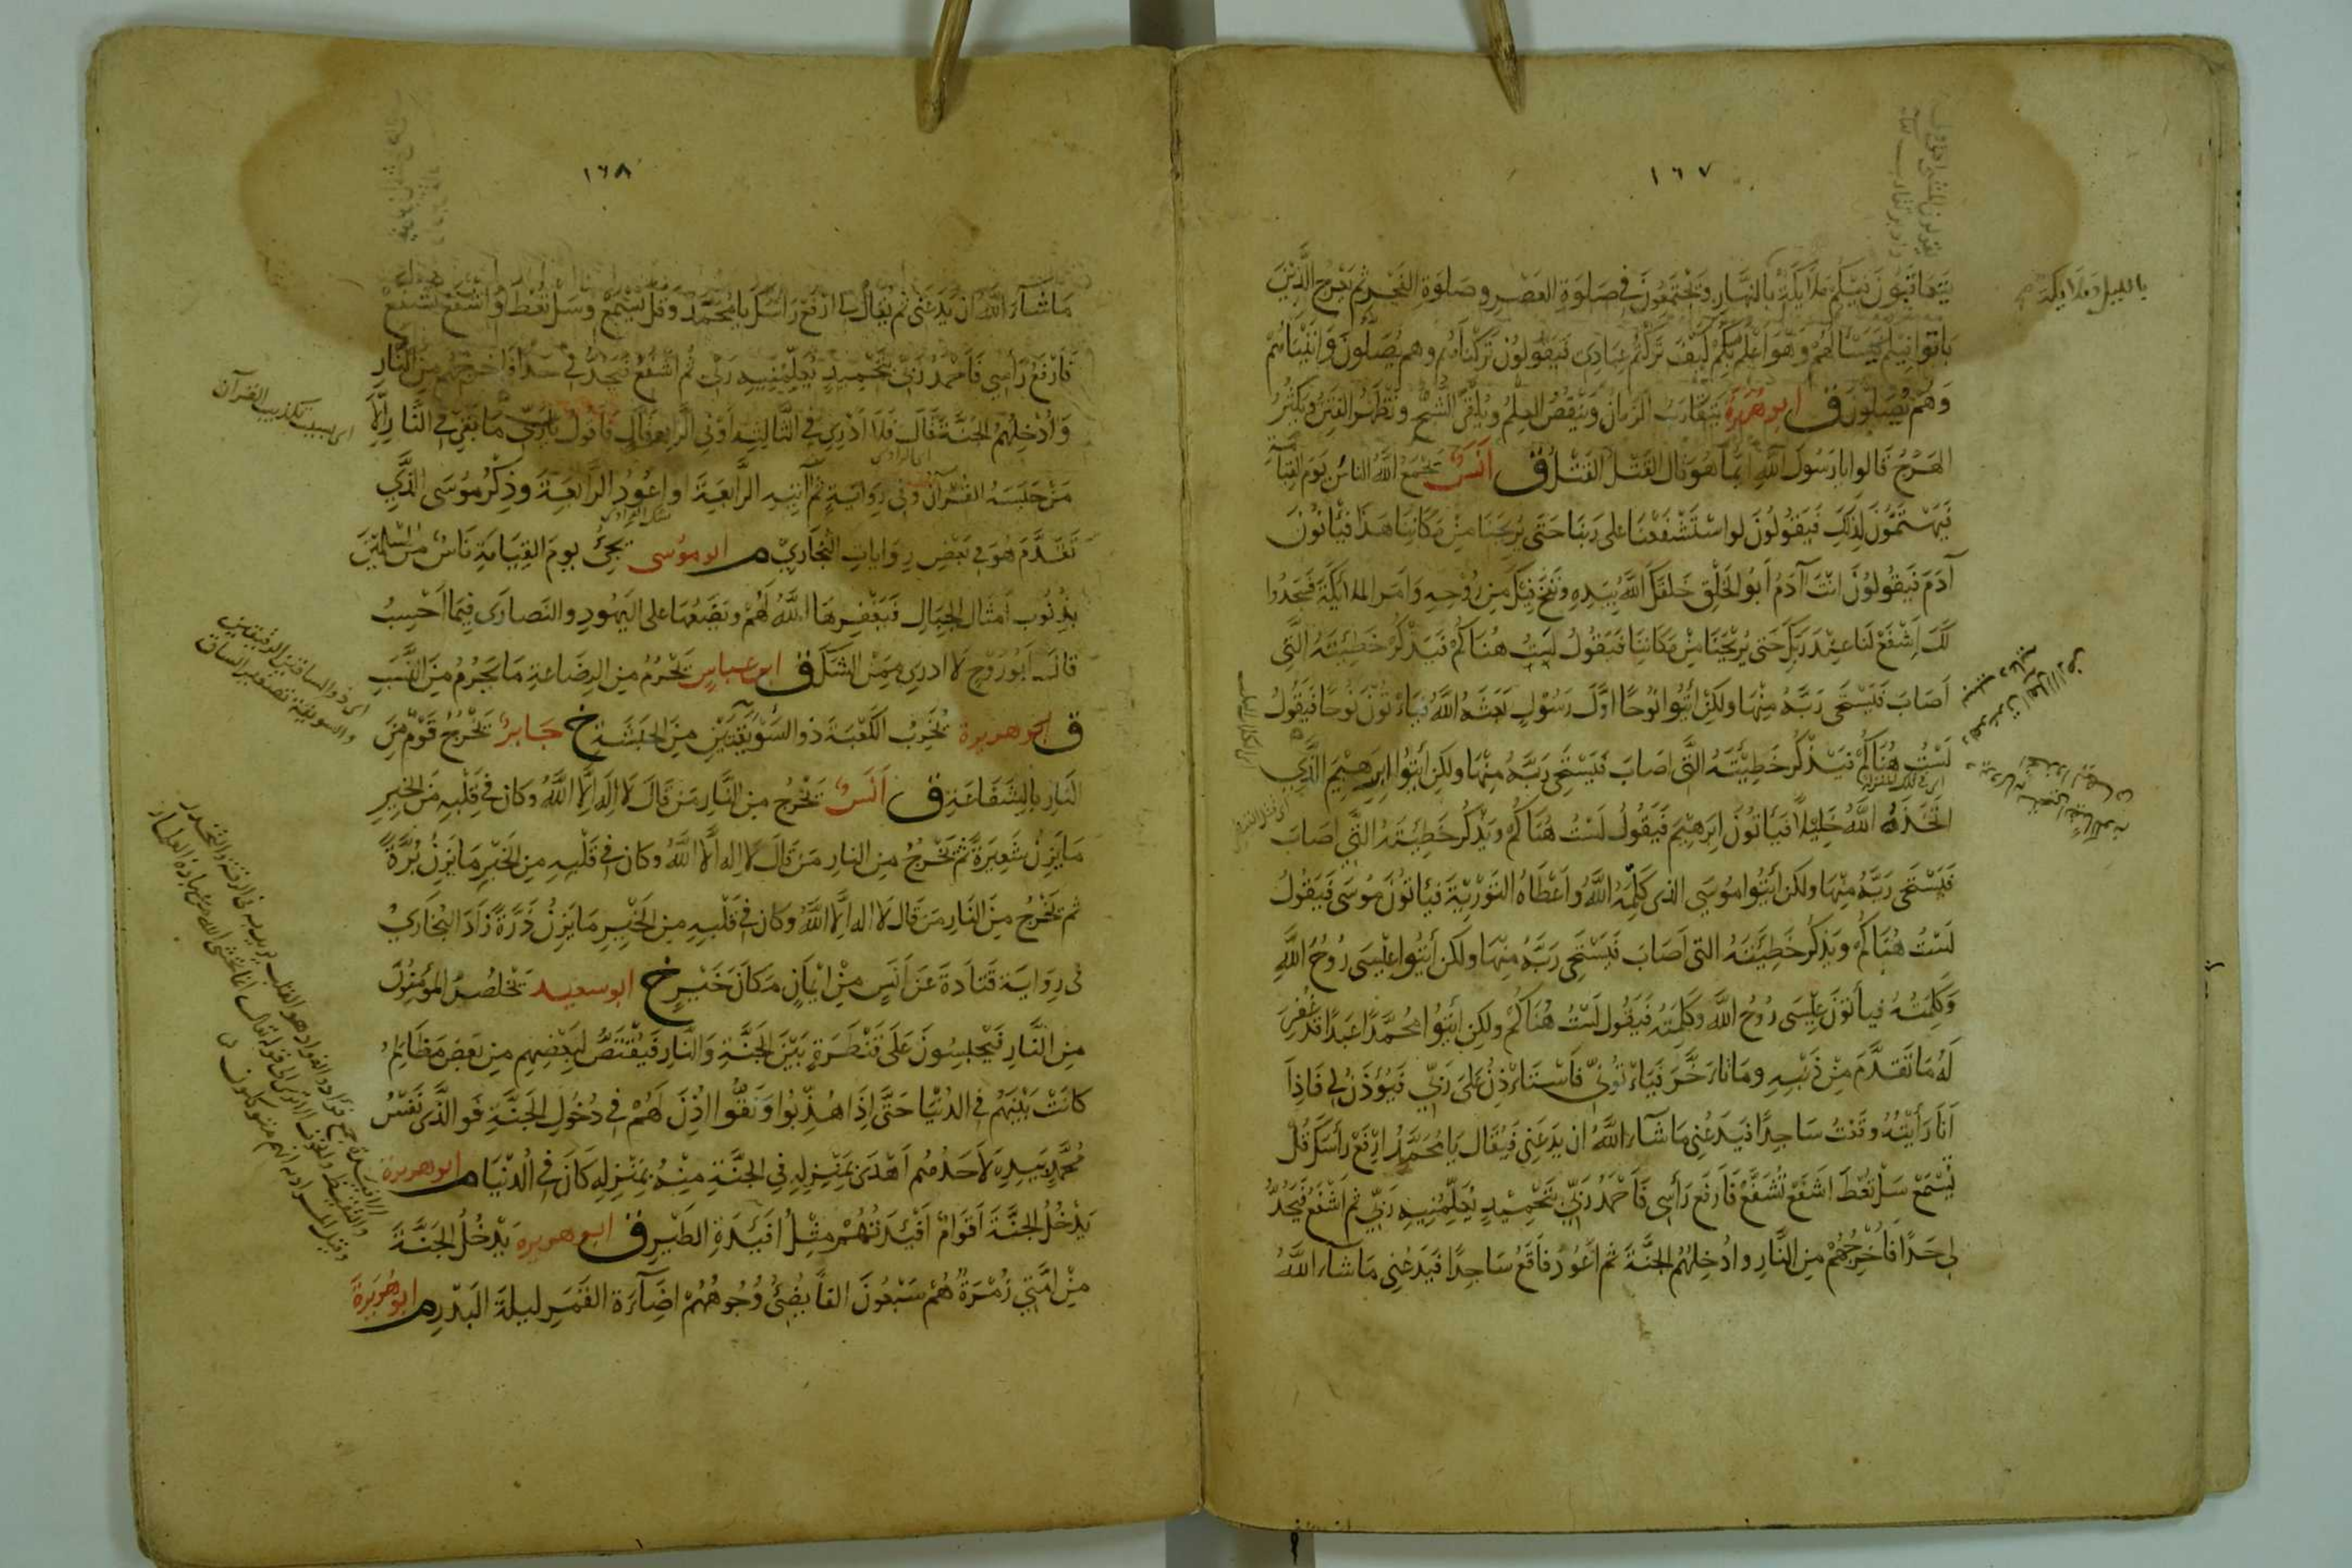 ١٦٧
يَتَعَاقَبُونَ فِيْكُمْ مَلَائِكَةٌ بِالنَّهَارِ وَيَجْتَمِعُونَ فِي صَلَوةِ العَصْرِ وصَلوةِ الفَجْرِ ثم يَعْرُجُ الَّذِيْنَ
بالليل وملائكة
بَاتُوا فِيْكُم فَيَسْأَلُهُمْ وَهُوَ اَعْلَمُ بِكُمْ كَيْفَ تَرَكْتُمْ عِبَادِى فَيَقُولُونَ تَرَكْنَاهُم وهم يُصَلُّونَ وَاتَيْنَاهُمْ
وَهُمْ يُصَلُّونَ ق ابو هُرَيْرَةَ يَتَقَارَبُ الزَّمَانُ وَيَنْقُصُ العِلْمُ وَيُلْقَى الشُّحُّ وتَظْهَرُ الفِتَنُ وَيَكْثُرُ
الهَرْجُ قَالوا يا رَسُولَ اللّٰهِ اَيُّمَا هُوَ قال القَتْلُ القَتْلُ ق اَنَسٌ يَجْمَعُ اللّٰهُ الناسَ يَوْمَ القِيَامَةِ
فَيَهْتَمُّونَ لِذَلِكَ فَيَقُولُونَ لوا سْتَشْفَعْنَا على رَبِّنَا حَتَّى يُرِيحَنَا مِنْ مَكَانِنَا هَذَا فَيَأْتُونَ
آدَمَ فَيَقُولُونَ اَنْتَ آدَمُ اَبُو الخَلْقِ خَلَقَكَ اللّٰهُ بِيَدِهِ وَنَفَخَ فِيْكَ مِن رُوْحِهِ وَاَمَرَ الملائِكَةَ فَسَجَدُوا
لَكَ اِشْفَعْ لَنَا عِنْدَ رَبِّكَ حَتى يُرِيْحَنَا مِنْ مَكَانِنَا فَيَقُولُ لَسْتُ هُنَاكُمْ فَيَذْكُرُ خَطِيْئَتَهُ الَّتِي
اَصَابَ فَيَسْتَحِى رَبَّهُ مِنْهَا ولَكِنْ اَيْتُوا نُوحًا اوَّلَ رَسُوْلٍ بَعَثَهُ اللّٰهُ فَيَاءْتُوْنَ نُوحًا فَيَقُولُ
لَسْتُ هُنَاكُمْ فيَذْكُرُ خَطِيْئَتَهُ التَّي اصَابَ فَيَسْتَحِي رَبَّهُ مِنْهَا ولكن أيْتُوا اِبرَهِيْمَ الَّذِي
اتَّخَذَهُ اللّٰهُ خَلِيْلًا فَيَأْتُونَ اِبرَهِيْمَ فَيَقُولُ لَسْتُ هُنَاكُمْ وَيَذْكُرُ خَطِيْئَتَهُ الَّتِي اَصَابَ
فَيَسْتَحِى رَبَّهُ مِنْهَا ولكن اَيْتُوا مُوسَى الذى كَلَّمَهُ اللّٰهُ وأَعْطَاهُ التَّوْرِيْةَ فَيَأتُونَ مُوسَى فَيَقُولُ
لَسْتُ هُنَاكُمْ ويَذكُرُ خَطِيْئَتَهُ التى اَصَابَ فَيَسْتَحِى رَبَّهُ مِنْهَا ولكن أيْتُوا عِيْسَى رُوْحَ اللّٰهِ
وَكَلِمَتَهُ فيأتونَ عِيْسَى رُوْحَ اللّٰهِ وَكَلِمَتَهُ فَيَقُولُ لَسْتُ هُنَاكُمْ ولكِن ايْتُوا مُحَمَّدًا عَبْدًا قَدْ غُفِرَ
لَهُ مَا تَقَدَّمَ مِنْ ذَنْبِهِ ومَا تَاَخَّرَ فَيَاءْتُونِّي فَاسْتَأْذِنُ عَلَى رَبِّي فَيُؤْذَنُ لِي فَاِذَا
اَنَا رَأَيْتُهُ وقَعْتُ سَاجِدًا فَيَدَعُنِى مَا شَآءَ اللّٰهُ ان يَدَعَنِي فَيُقَال يَا مُحَمَّدُ ارْفَعْ رَأسَكَ قُلْ
تُسْمَعْ سَلْ تُعْطَ اشْفَعْ تُشَفَّعْ فَاَرْفَعُ رَأسِى فَاَحْمَدُ رَبِّي بِتَحْمِيْدٍ يُعَلِّمُنِيهِ رَبِّي ثم اَشْفَعُ فَيَحُدُّ
لى حَدًّا فَاُخْرِجُهُمْ مِن النَّارِ واُدْخِلُهُمُ الجنَّةَ ثم اَعُوْدُ فأَقَعُ سَاجِدًا فَيَدَعُنِى مَا شاءَ اللَّهُ
١٦٨
مَا شَآءَ اللّٰهُ ان يَدَعَنِى ثم يُقالُ لي ارْفَعْ رَاْسَكَ يا مُحَمَّدُ وَقُلْ يُسْمَعْ وسَلْ تُعْطَ واشْفَعْ تُشَفَّعْ
فَاَرْفَعُ رَأْسِي فَاَحْمَدُ رَبِّي بتَحْمِيدٍ يُعَلِّمُنِيهِ رَبِّي ثُمَّ اشْفَعُ فَيَحُدُّ لي حَدًّا فَاُخْرِجُهُمْ مِنَ النَّارِ
وَاُدْخِلُهُمُ الجَنَّةَ قَالَ فَلَا اَدْرِي فِي الثَّالِثَةِ اَوْ فِي الرَّابِعَةِ قال فَاَقُولُ يَا رَبِّ مَا بَقِيَ فِي النَّارِ اِلَّا
اى بسبب تكذيب القرآن
مَنْ حَبَسَهُ القُرآنُ وَفِي رِوَايَةٍ ثُمَّ آتِيْهِ الرَّابِعَةَ او اَعُودُ الرَّابِعَةَ وَذِكْرُ مُوسَى الَّذِي
تَقَدَّمَ هُوَ في بَعْضِ رِوَاياتِ البُخَارِيِّ م ابو مُوْسَى يَجِئُ يومَ القِيَامَةِ نَاسٌ مِن المُسْلِمِيْنَ
بِذُنُوبٍ اَمْثَال الجِبَالِ فَيَغْفِرهَا اللّٰهُ لَهُمْ ويَضَعُهَا على اليَهُودِ والنَصَارَى فِيْمَا اَحْسِبُ
قَالَ اَبُو رَوْحٍ لَا ادري مِمَّنِ الشَّكُّ ق ابن عباسٍ يَحْرُمُ مِن الرِضَاعَةِ مَا يَحْرُمُ مِنَ النَّسَبِ
ق ابو هريرة يُخَرِّبُ الكَعْبَةَ ذو السُّوَيْقَتَيْنِ مِنَ الحَبَشَةِ خ جَابرٌ يَخْرُجُ قَوْمٌ مِنَ
اى ذو الساقين الدقيقتين
والسويقة تصغير الساق
النَّارِ بِالشَّفَاعَةِ ق اَنَسٌ يَخْرُجُ مِن النَّارِ مَنْ قَالَ لَا اِلٰهَ اِلَّا اللّٰهُ وكَان في قَلْبِهِ مِنَ الخَيْرِ
مَا يَزِنُ شَعِيرَةً ثُمَّ يَخْرُجُ مِن النار مَنْ قَالَ لَا اله اِلَّا اللّٰهُ وكان في قَلْبِهِ مِن الخَيْرِ مَا يَزِنُ بُرَّةً
ثم يَخْرُجُ مِنَ النَّارِ مَنْ قَال لَا اله اِلَّا اللّٰهُ وكان في قَلْبِهِ مِن الخَيْرِ مَا يَزِنُ ذَرَّةً زَادَ البُخَارِيْ
فى رِوَايَة قَتَادَةَ عَن اَنَسٍ مِنْ اِيْمَانٍ مَكَانَ خَيْرٍ خ ابو سعيد يَخْلُصُ المؤمِنُونَ
مِن النَّارِ فَيُحْبَسُونَ عَلَى قَنْطَرَةٍ بَيْنَ الجَنَّةِ وَالنَّارِ فَيُقْتَصُّ لِبَعْضِهِم مِن بَعْضٍ مَظَالِمُ
كَانَتْ بَيْنَهُمْ في الدُنْيا حَتَّى اِذَا هُذِّبُوا وَنُقُّوا اُذِنَ لَهُمْ في دُخُولِ الجَنَّةِ فَو الَّذى نَفْسُ
مُحَمَّدٍ بِيَدِهِ لَاَحَدُهُم اَهْدَى بِمَنْزِلِهِ فِي الجَنَّةِ مِنْهُ بِمَنْزِلِهِ كَانَ في الدُنْيَا م ابو هريرة
يَدْخُلُ الجنَّةَ اَقْوَامٌ اَفْئِدَتُهُمْ مِثْلُ اَفْئِدَةِ الطَّيْرِ ق ابو هريره يَدْخُلُ الجَنَّةَ
مِنْ اُمَّتِي زُمْرَةٌ هُمْ سَبْعُونَ الفًا يُضِئُ وُجُوهُهُمْ اِضَآءَةَ القَمَرِ ليلَةَ البَدْرِ م ابو هُرَيْرَةَ